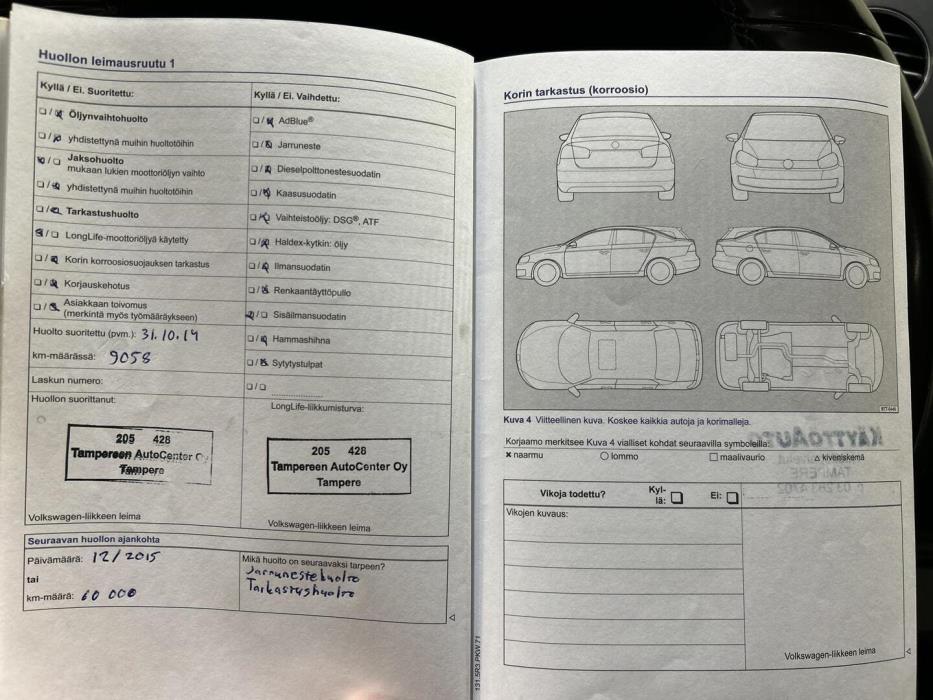 Huollon leimausruutu 1
Kyllä / Ei. Suoritettu:
Kyllä / Ei. Vaihdettu:
Öljynvaihtohuolto
yhdistettynä muihin huoltotöihin
Jaksohuolto
mukaan lukien moottoriöljyn vaihto
yhdistettynä muihin huoltotöihin
Tarkastushuolto
LongLife-moottoriöljyä käytetty
Korin korroosiosuojauksen tarkastus
Korjauskehotus
Asiakkaan toivomus
(merkintä myös työmääräykseen)
AdBlue®
Jarruneste
Dieselpolttonestesuodatin
Kaasusuodatin
Vaihteistoöljy: DSG®, ATF
Haldex-kytkin: öljy
Ilmansuodatin
Renkaantäyttöpullo
Sisäilmansuodatin
Hammashihna
Sytytystulpat
Huolto suoritettu (pvm.): 31.10.14
km-määrässä: 9058
Laskun numero:
Huollon suorittanut:
205 428
Tampereen AutoCenter
Tampere
Volkswagen-liikkeen leima
LongLife-liikkumisturva:
205 428
Tampereen AutoCenter Oy
Tampere
Volkswagen-liikkeen leima
Seuraavan huollon ajankohta
Päivämäärä: 12/2015
tai
km-määrä: 60 000
Mikä huolto on seuraavaksi tarpeen?
Jarrunestehuolto
Tarkastushuolto
Korin tarkastus (korroosio)
Kuva 4 Viitteellinen kuva. Koskee kaikkia autoja ja korimalleja.
Korjaamo merkitsee Kuva 4 vialliset kohdat seuraavilla symboleilla:
naarmu
lommo
maalivaurio
kiveniskemä
Vikoja todettu?
Kyl-
lä:
Ei:
Vikojen kuvaus:
Volkswagen-liikkeen leima
131.5R3.PKW.71